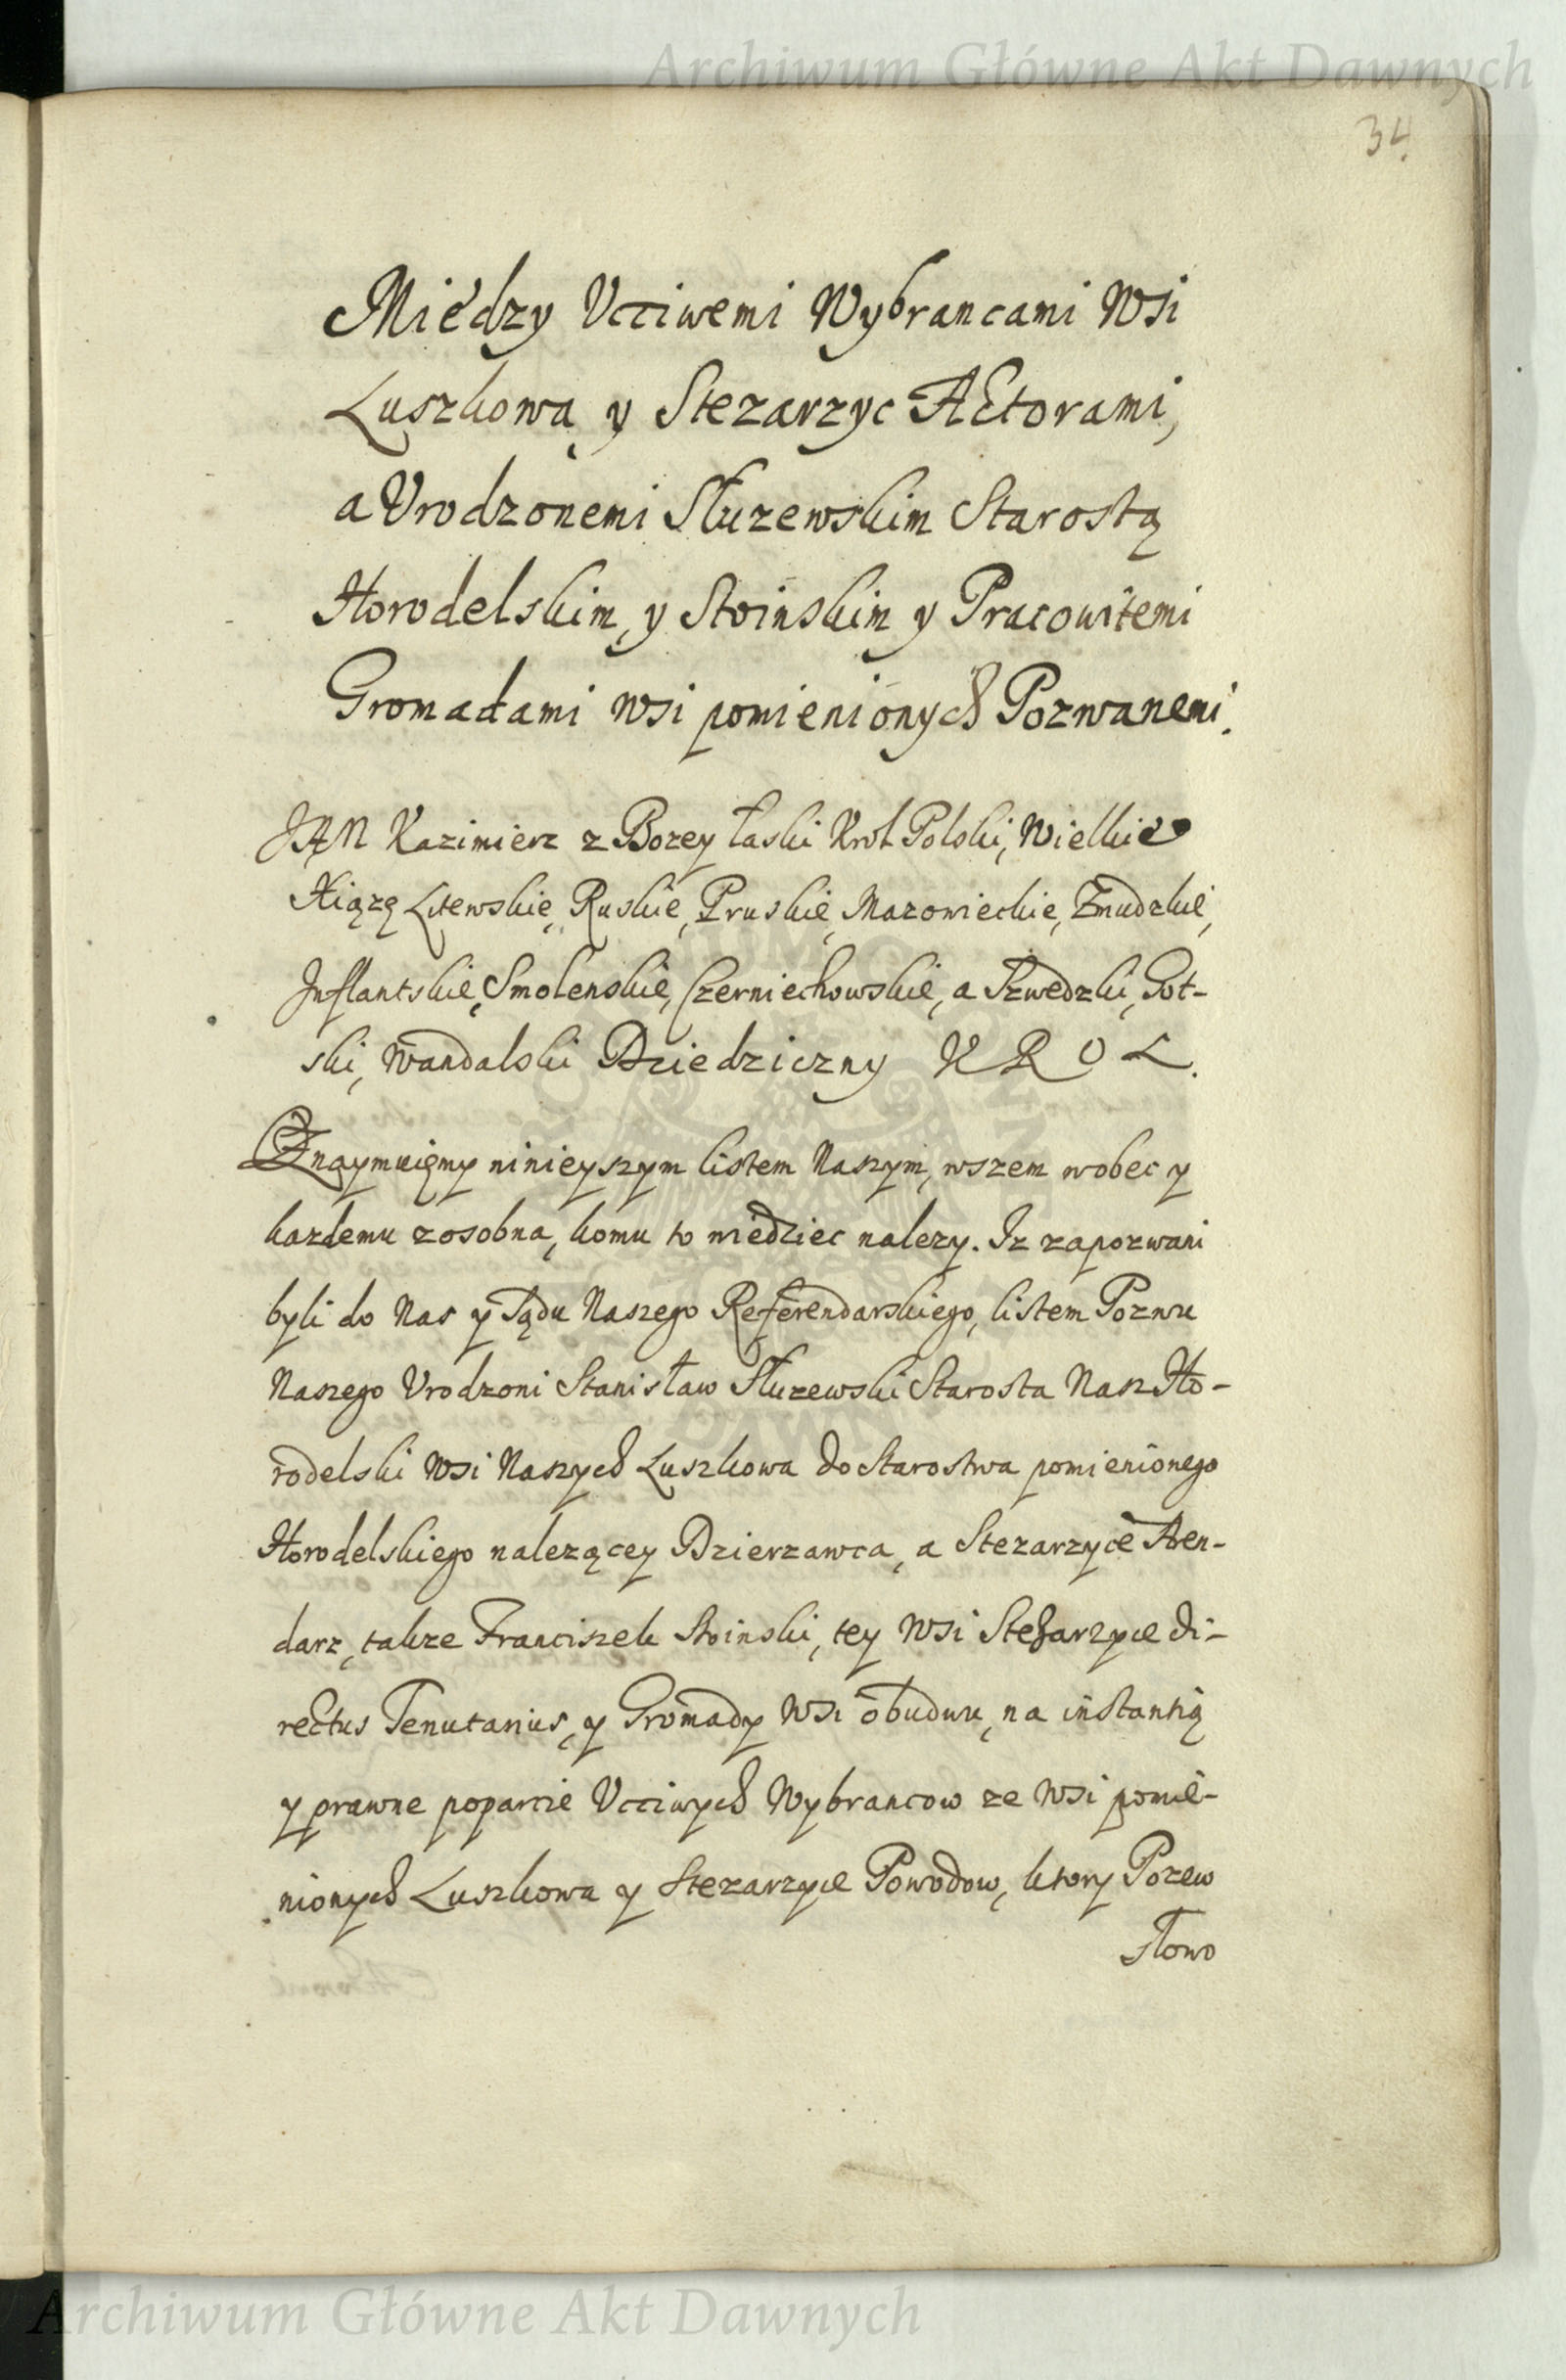 Archiwum Główne Akt Dawnych
34.
Między Ucciwemi Wybrancami Wsi
Luszkowa, y Stezarzyc Actorami,
a Urodzonemi Służewskim Starostą
Horodelskim, y Stoinskim y Pracowitemi
Gromadami wsi pomienionych Pozwanemi.
JAN Kazimierz z Bozey łaski Krol Polski, Wielkie
Xiązę Litewskie, Ruskie, Pruskie, Mazowieckie, Zmudzkie,
Inflantskie, Smolenskie, Czerniechowskie, a Szwedzki, Got-
ski, Wandalski Dziedziczny KROL.
Oznaymuięmy ninieyszym listem Naszym, wszem wobec y
kazdemu zosobna, komu to wiedziec nalezy. Iz zapozwani
byli do Nas y Sądu Naszego Referendarskiego, listem Pozwu
Naszego Urodzoni Stanisław Słuzewski Starosta Nasz Ho-
rodelski Wsi Naszych Luszkowa do Starostwa pomienionego
Horodelskiego nalezącey Dzierzawca, a Stezarzyce Aren-
darz, takze Franciszek Stoinski, tey Wsi Stezarzyce di-
rectus Tenutarius, y Gromady Wsi obudwu, na instantią
y prawne poparcie Ucciwych Wybrancow ze Wsi pomie-
nionych Luszkowa y Stezarzyce Powodow, ktory Pozew
słowo
Archiwum Główne Akt Dawnych